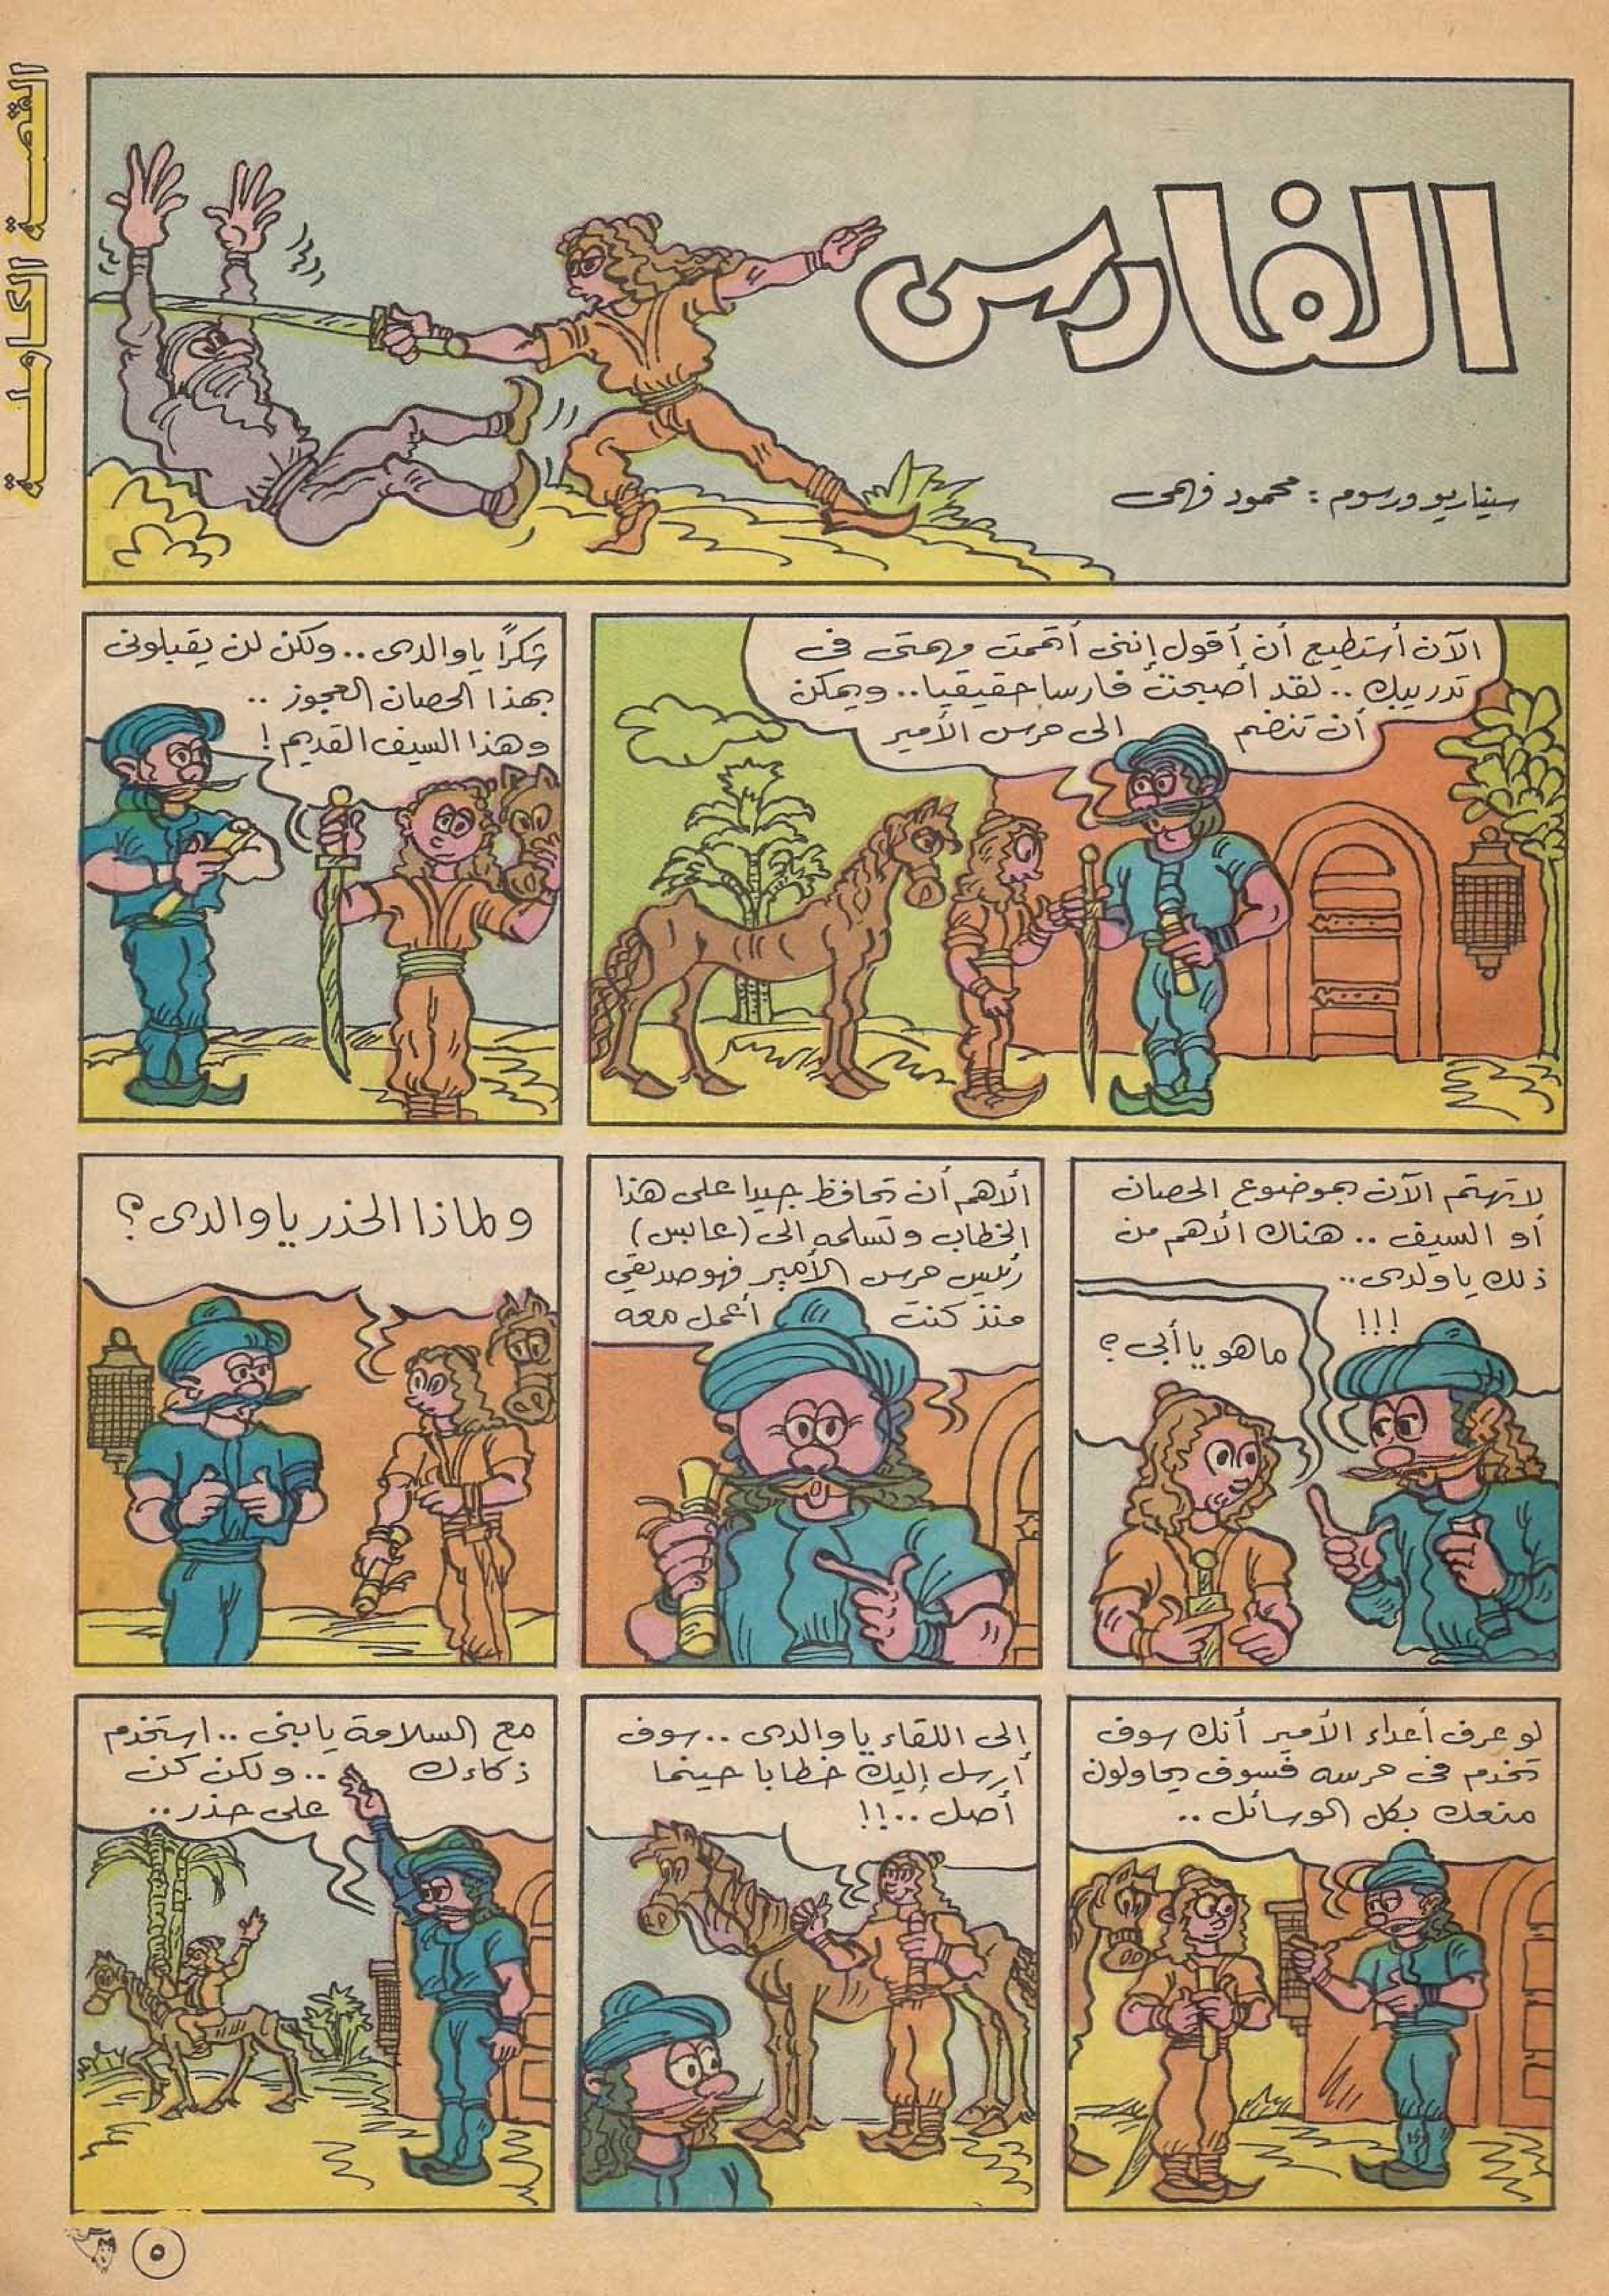 القصة الكاملة
الفارس
سيناريو ورسوم : محمود فهمى
الآن أستطيع أن أقول إننى أتممت مهمتى فى
تدريبك .. لقد أصبحت فارسا حقيقيا .. ويمكن
أن تنضم الى حرس الأمير
شكرًا ياوالدى .. ولكن لن يقبلونى
بهذا الحصان العجوز ..
وهذا السيف القديم !
لاتهتم الآن بموضوع الحصان
أو السيف .. هناك الأهم من
ذلك ياولدى ..
!!!
ماهو ياأبى ؟
ألأهم أن تحافظ جيدا على هذا
الخطاب وتسلمه الى (عابس)
رئيس حرس الأمير فهو صديقي
منذ كنت أعمل معه
ولماذا الحذر ياوالدى ؟
لو عرف أعداء الأمير أنك سوف
تخدم فى حرسه فسوف يحاولون
منعك بكل الوسائل ..
الى اللقاء ياوالدى .. سوف
أرسل إليك خطابا حينما
أصل ..!!
مع السلامة يابنى .. استخدم
ذكاءك .. ولكن كن
على حذر ..
٥